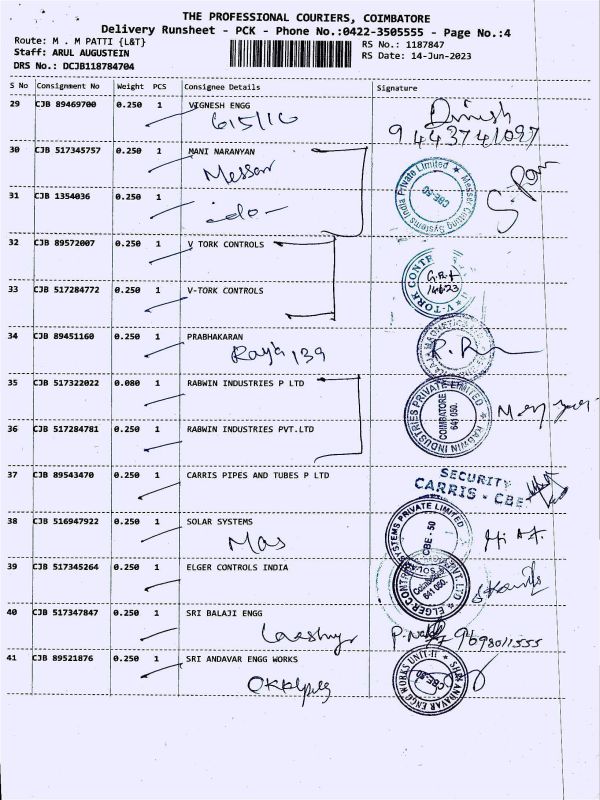 THE PROFESSIONAL COURIERS, COIMBATORE
Delivery Runsheet - PCK - Phone No.:0422-3505555 - Page No.:4
Route: M . M PATTI {L&T}
RS No.: 1187847
Staff: ARUL AUGUSTEIN
RS Date: 14-Jun-2023
DRS No.: DCJB118784704
S No Consignment No Weight PCS Consignee Details Signature
29 CJB 89469700 0.250 1 VIGNESH ENGG
Dinesh
30 CJB 517345757 0.250 1 MANI NARANYAN
Messer
Messer Cutting Systems India Private Limited
CBE-50
31 CJB 1354036 0.250 1
32 CJB 89572007 0.250 1 V TORK CONTROLS
V-TORK CONT
14/6/23
33 CJB 517284772 0.250 1 V-TORK CONTROLS
34 CJB 89451160 0.250 1 PRABHAKARAN
35 CJB 517322022 0.080 1 RABWIN INDUSTRIES P LTD
RABWIN INDUSTRIES PRIVATE LIMITED
COIMBATORE
641 050.
36 CJB 517284781 0.250 1 RABWIN INDUSTRIES PVT.LTD
37 CJB 89543470 0.250 1 CARRIS PIPES AND TUBES P LTD
SECURITY
CARRIS - CBE
38 CJB 516947922 0.250 1 SOLAR SYSTEMS
SYSTEMS PRIVATE LIMITED
CBE - 50
39 CJB 517345264 0.250 1 ELGER CONTROLS INDIA
ELGER CONTR PVT. LTD
Coimbatore
641 050.
40 CJB 517347847 0.250 1 SRI BALAJI ENGG
9698011555
41 CJB 89521876 0.250 1 SRI ANDAVAR ENGG WORKS
SHRI ANDAVAR ENGG WORKS UNIT-II
CBE-50